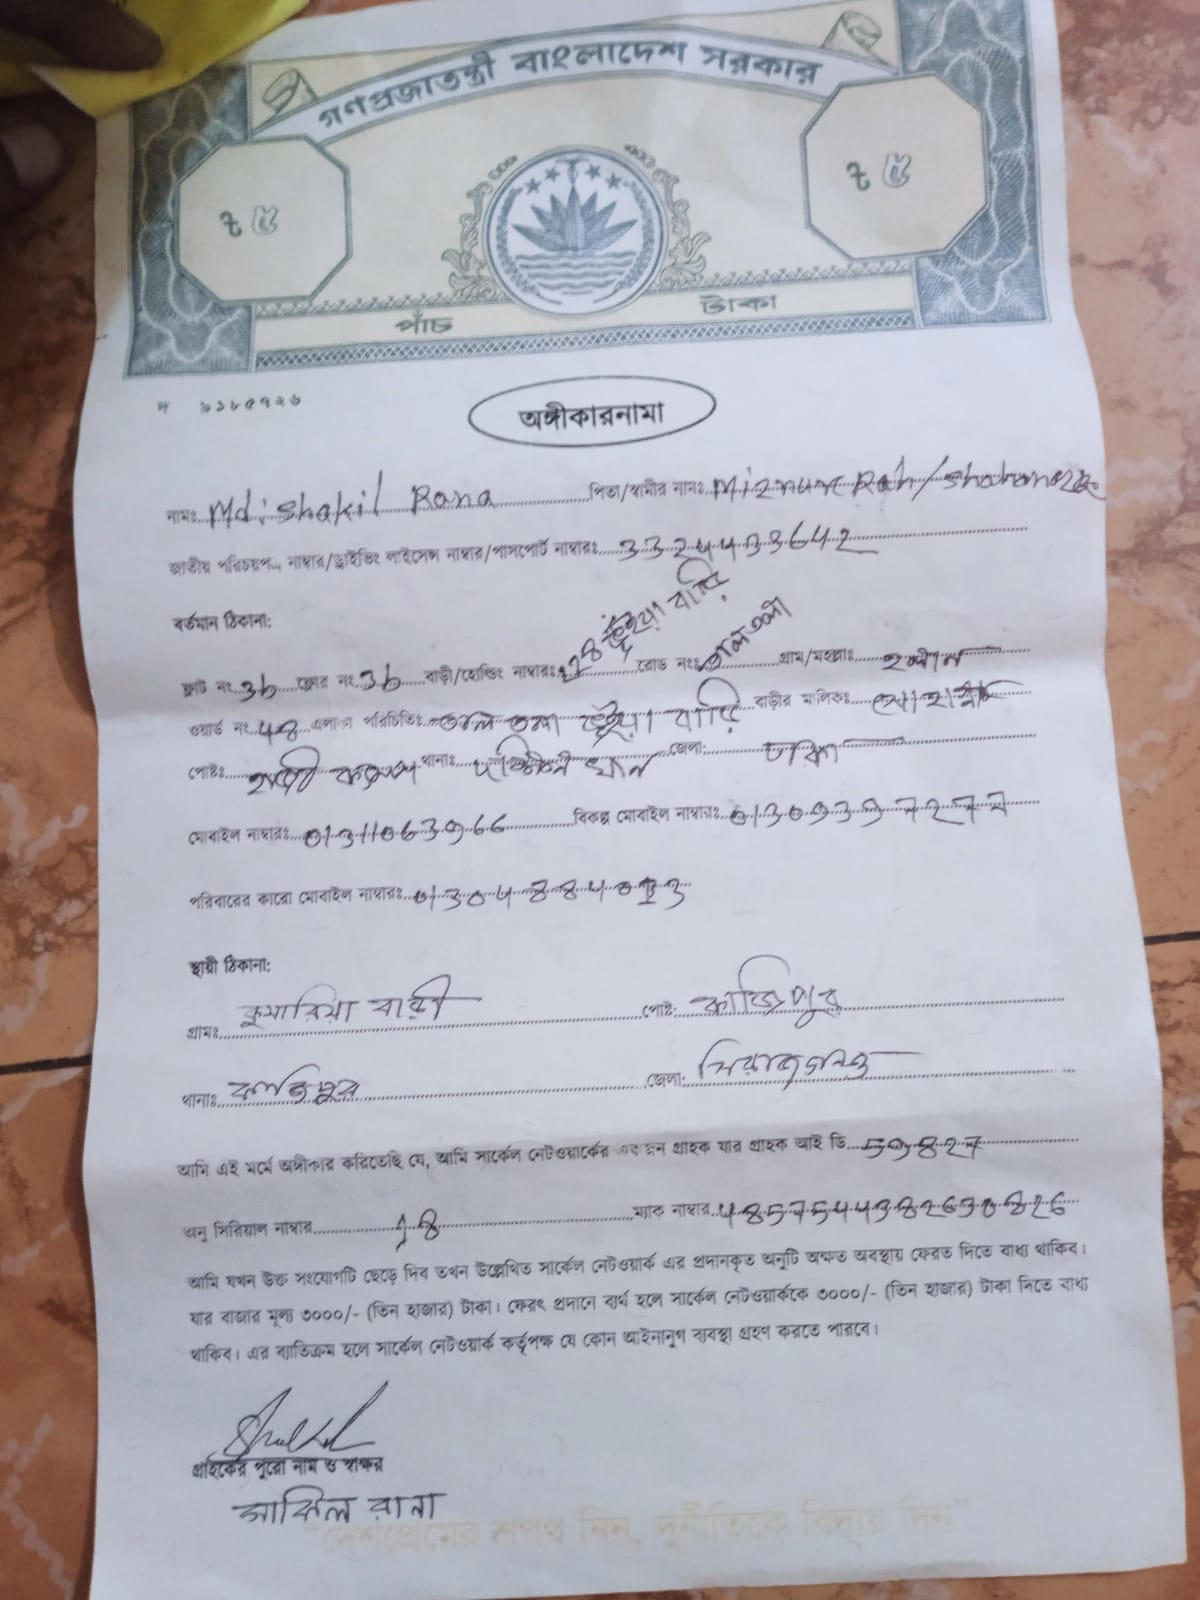 গণপ্রজাতন্ত্রী বাংলাদেশ সরকার
৳ ৫ ৳ ৫
পাঁচ টাকা
৯১৮৫৭২৬
অঙ্গীকারনামা
নামঃ Md: Shakil Rana পিতা/স্বামীর নামঃ
জাতীয় পরিচয়পত্র নাম্বার/ড্রাইভিং লাইসেন্স নাম্বার/পাসপোর্ট নাম্বারঃ 3324433642
বর্তমান ঠিকানা:
ফ্লাট নং 3b ফ্লোর নং 3b বাড়ী/হোল্ডিং নাম্বারঃ 128 ভূঁইয়া বাড়ি রোড নংঃ তালতলা গ্রাম/মহল্লাঃ
ওয়ার্ড নং 48 এলাকা পরিচিতিঃ তালতলা ভূঁইয়া বাড়ি বাড়ীর মালিকঃ
পোষ্টঃ থানাঃ দক্ষিণ খান জেলা: ঢাকা
মোবাইল নাম্বারঃ 01311063966 বিকল্প মোবাইল নাম্বারঃ 01309397277
পরিবারের কারো মোবাইল নাম্বারঃ
স্থায়ী ঠিকানা:
গ্রামঃ কুমারিয়া বাড়ী পোষ্ট: কাজিপুর
থানাঃ কাজিপুর জেলা: সিরাজগঞ্জ
আমি এই মর্মে অঙ্গীকার করিতেছি যে, আমি সার্কেল নেটওয়ার্কের একজন গ্রাহক যার গ্রাহক আই ডি 59827
অনু সিরিয়াল নাম্বার 18 ম্যাক নাম্বার 4857544382630826
আমি যখন উক্ত সংযোগটি ছেড়ে দিব তখন উল্লেখিত সার্কেল নেটওয়ার্ক এর প্রদানকৃত অনুটি অক্ষত অবস্থায় ফেরত দিতে বাধ্য থাকিব।
যার বাজার মূল্য ৩০০০/- (তিন হাজার) টাকা। ফেরৎ প্রদানে ব্যর্থ হলে সার্কেল নেটওয়ার্ককে ৩০০০/- (তিন হাজার) টাকা দিতে বাধ্য
থাকিব। এর ব্যাতিক্রম হলে সার্কেল নেটওয়ার্ক কর্তৃপক্ষ যে কোন আইনানুগ ব্যবস্থা গ্রহণ করতে পারবে।
গ্রাহকের পুরো নাম ও স্বাক্ষর
সাকিল রানা
"দেশপ্রেমের শপথ নিন, দুর্নীতিকে বিদায় দিন"